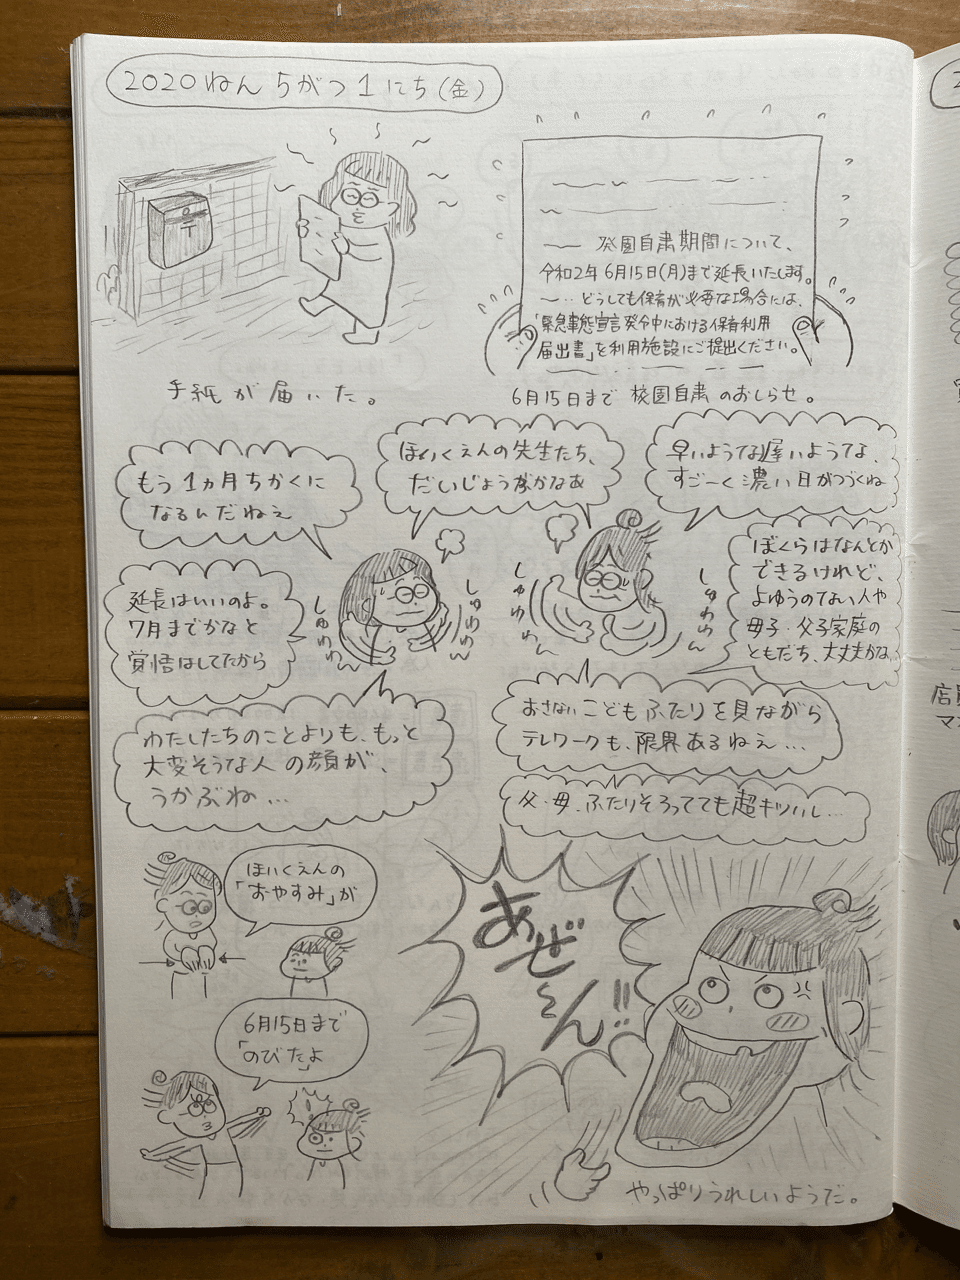 2020ねん 5がつ1にち(金)
登園自粛期間について、
令和2年 6月15日(月)まで延長いたします。
〜‥どうしても保育が必要な場合には、
「緊急事態宣言発令中における保育利用
届出書」を利用施設にご提出ください。
手紙が届いた。
6月15日まで 校園自粛 のおしらせ。
もう1ヵ月ちかくに
なるんだねぇ
ほいくえんの先生たち、
だいじょうぶかなあ
早いようでな遅いようてな、
すごーく濃い日がつづくね
延長はいいのよ。
7月までかなと
覚悟はしてたから
しゅわわわ〜
しゅわわわ〜
しゅわわわ〜
しゅわわわ〜
ぼくらはなんとか
できるけれど、
よゆうのてない人や
母子・父子家庭の
ともだち、大丈夫かな
わたしたちのことよりも、もっと
大変そうな人の顔が、
うかぶね…
おさないこどもふたりを見ながら
テレワークも、限界あるねえ…
父・母、ふたりそろってても超キツいし…
ほいくえんの
「おやすみ」が
6月15日まで
「のびた」よ
あぜ
ーん!!
やっぱりうれしいようだ。
2
店員
マス